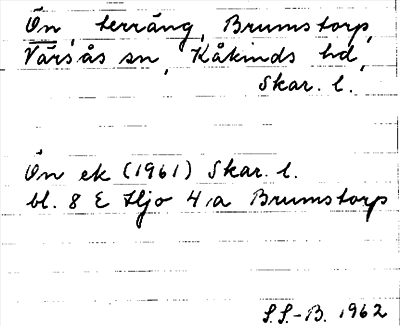 Ön, terräng, Brumstorp,
Värsås sn, Kåkinds hd,
Skar. l.
Ön ek (1961) Skar. l.
bl. 8 E Hjo 4 a Brumstorp
S.S.-B. 1962